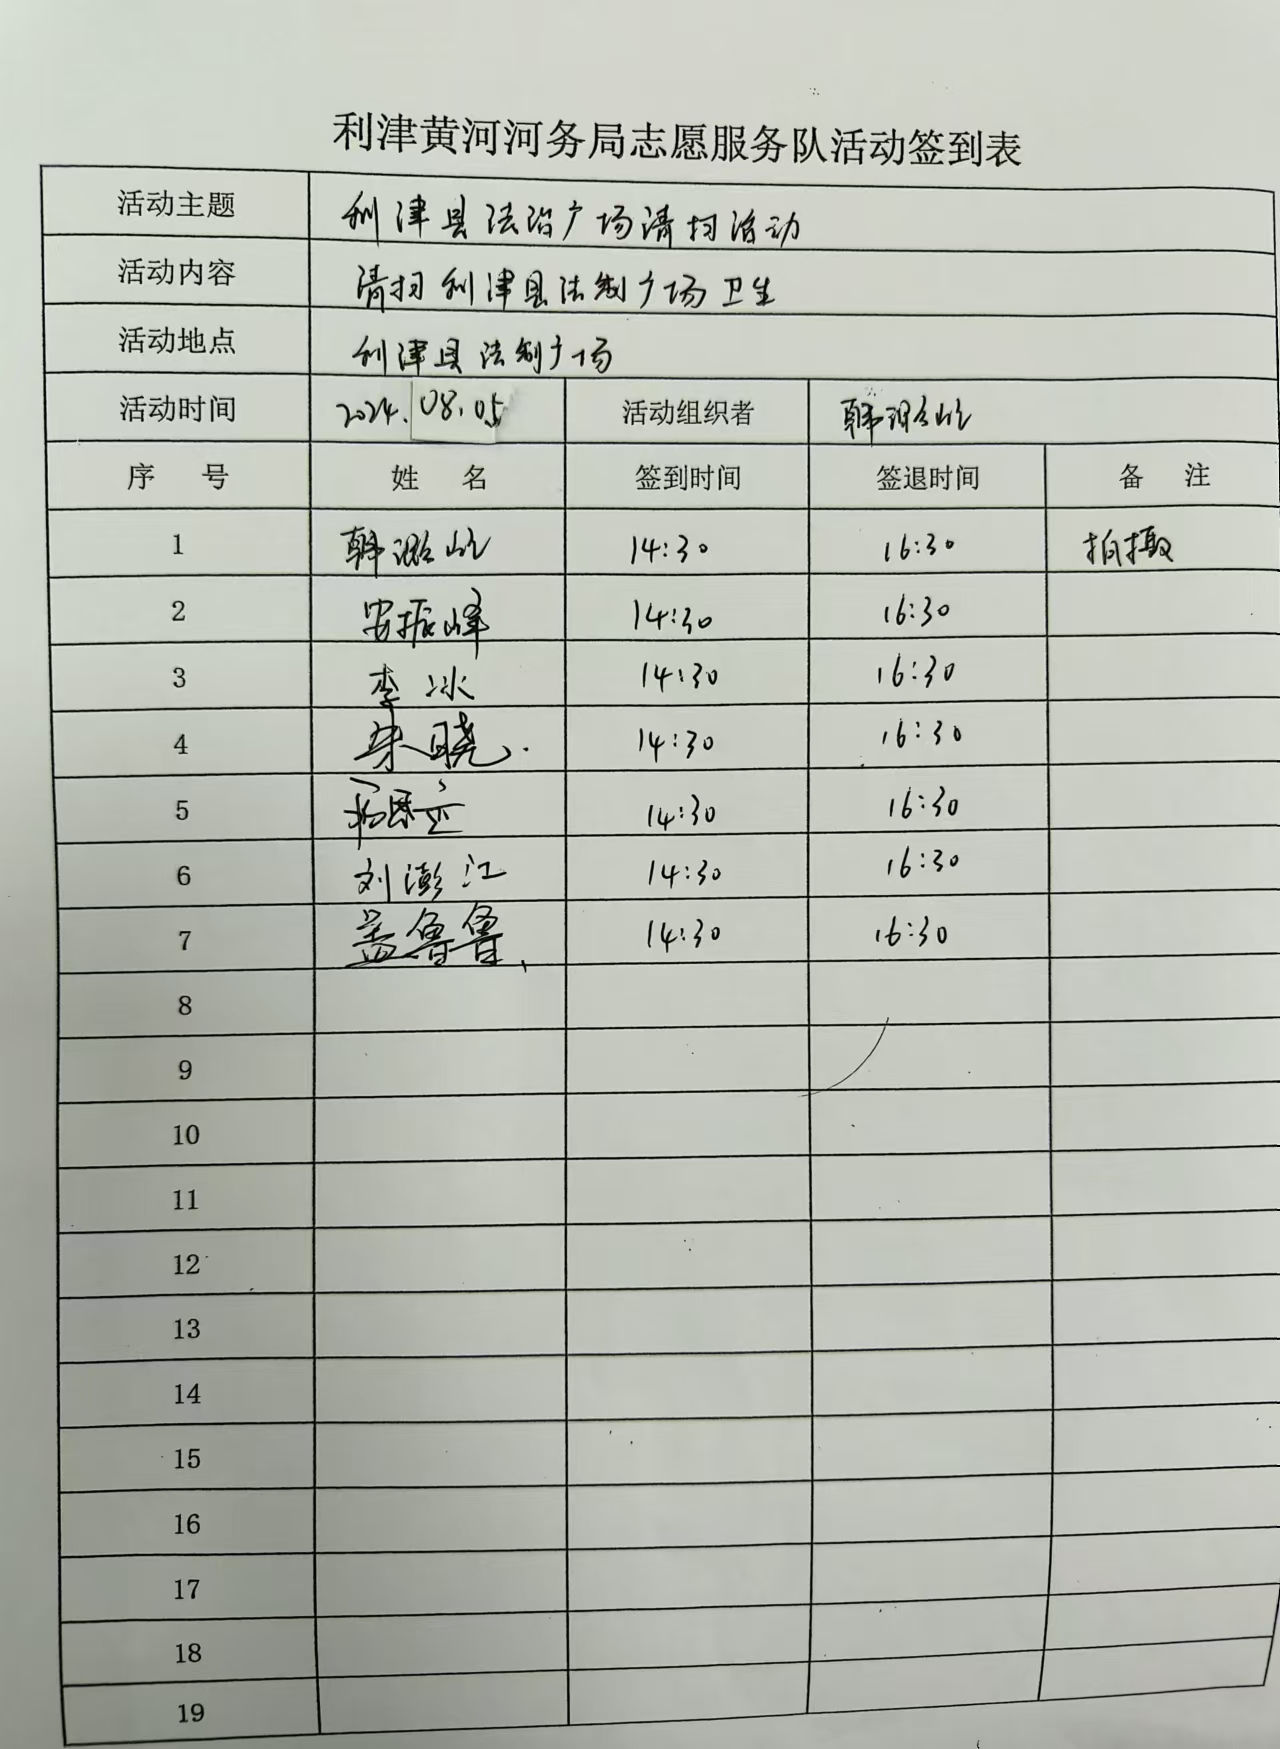 利津黄河河务局志愿服务队活动签到表
活动主题 利津县法治广场清扫活动
活动内容 清扫利津县法制广场卫生
活动地点 利津县法制广场
活动时间 2024.08.05 活动组织者 韩
序 号 姓 名 签到时间 签退时间 备 注
1 韩 14:30 16:30 拍摄
2 安振峰 14:30 16:30
3 李冰 14:30 16:30
4 宋晓 14:30 16:30
5 14:30 16:30
6 刘澎江 14:30 16:30
7 盖鲁鲁 14:30 16:30
8
9
10
11
12
13
14
15
16
17
18
19